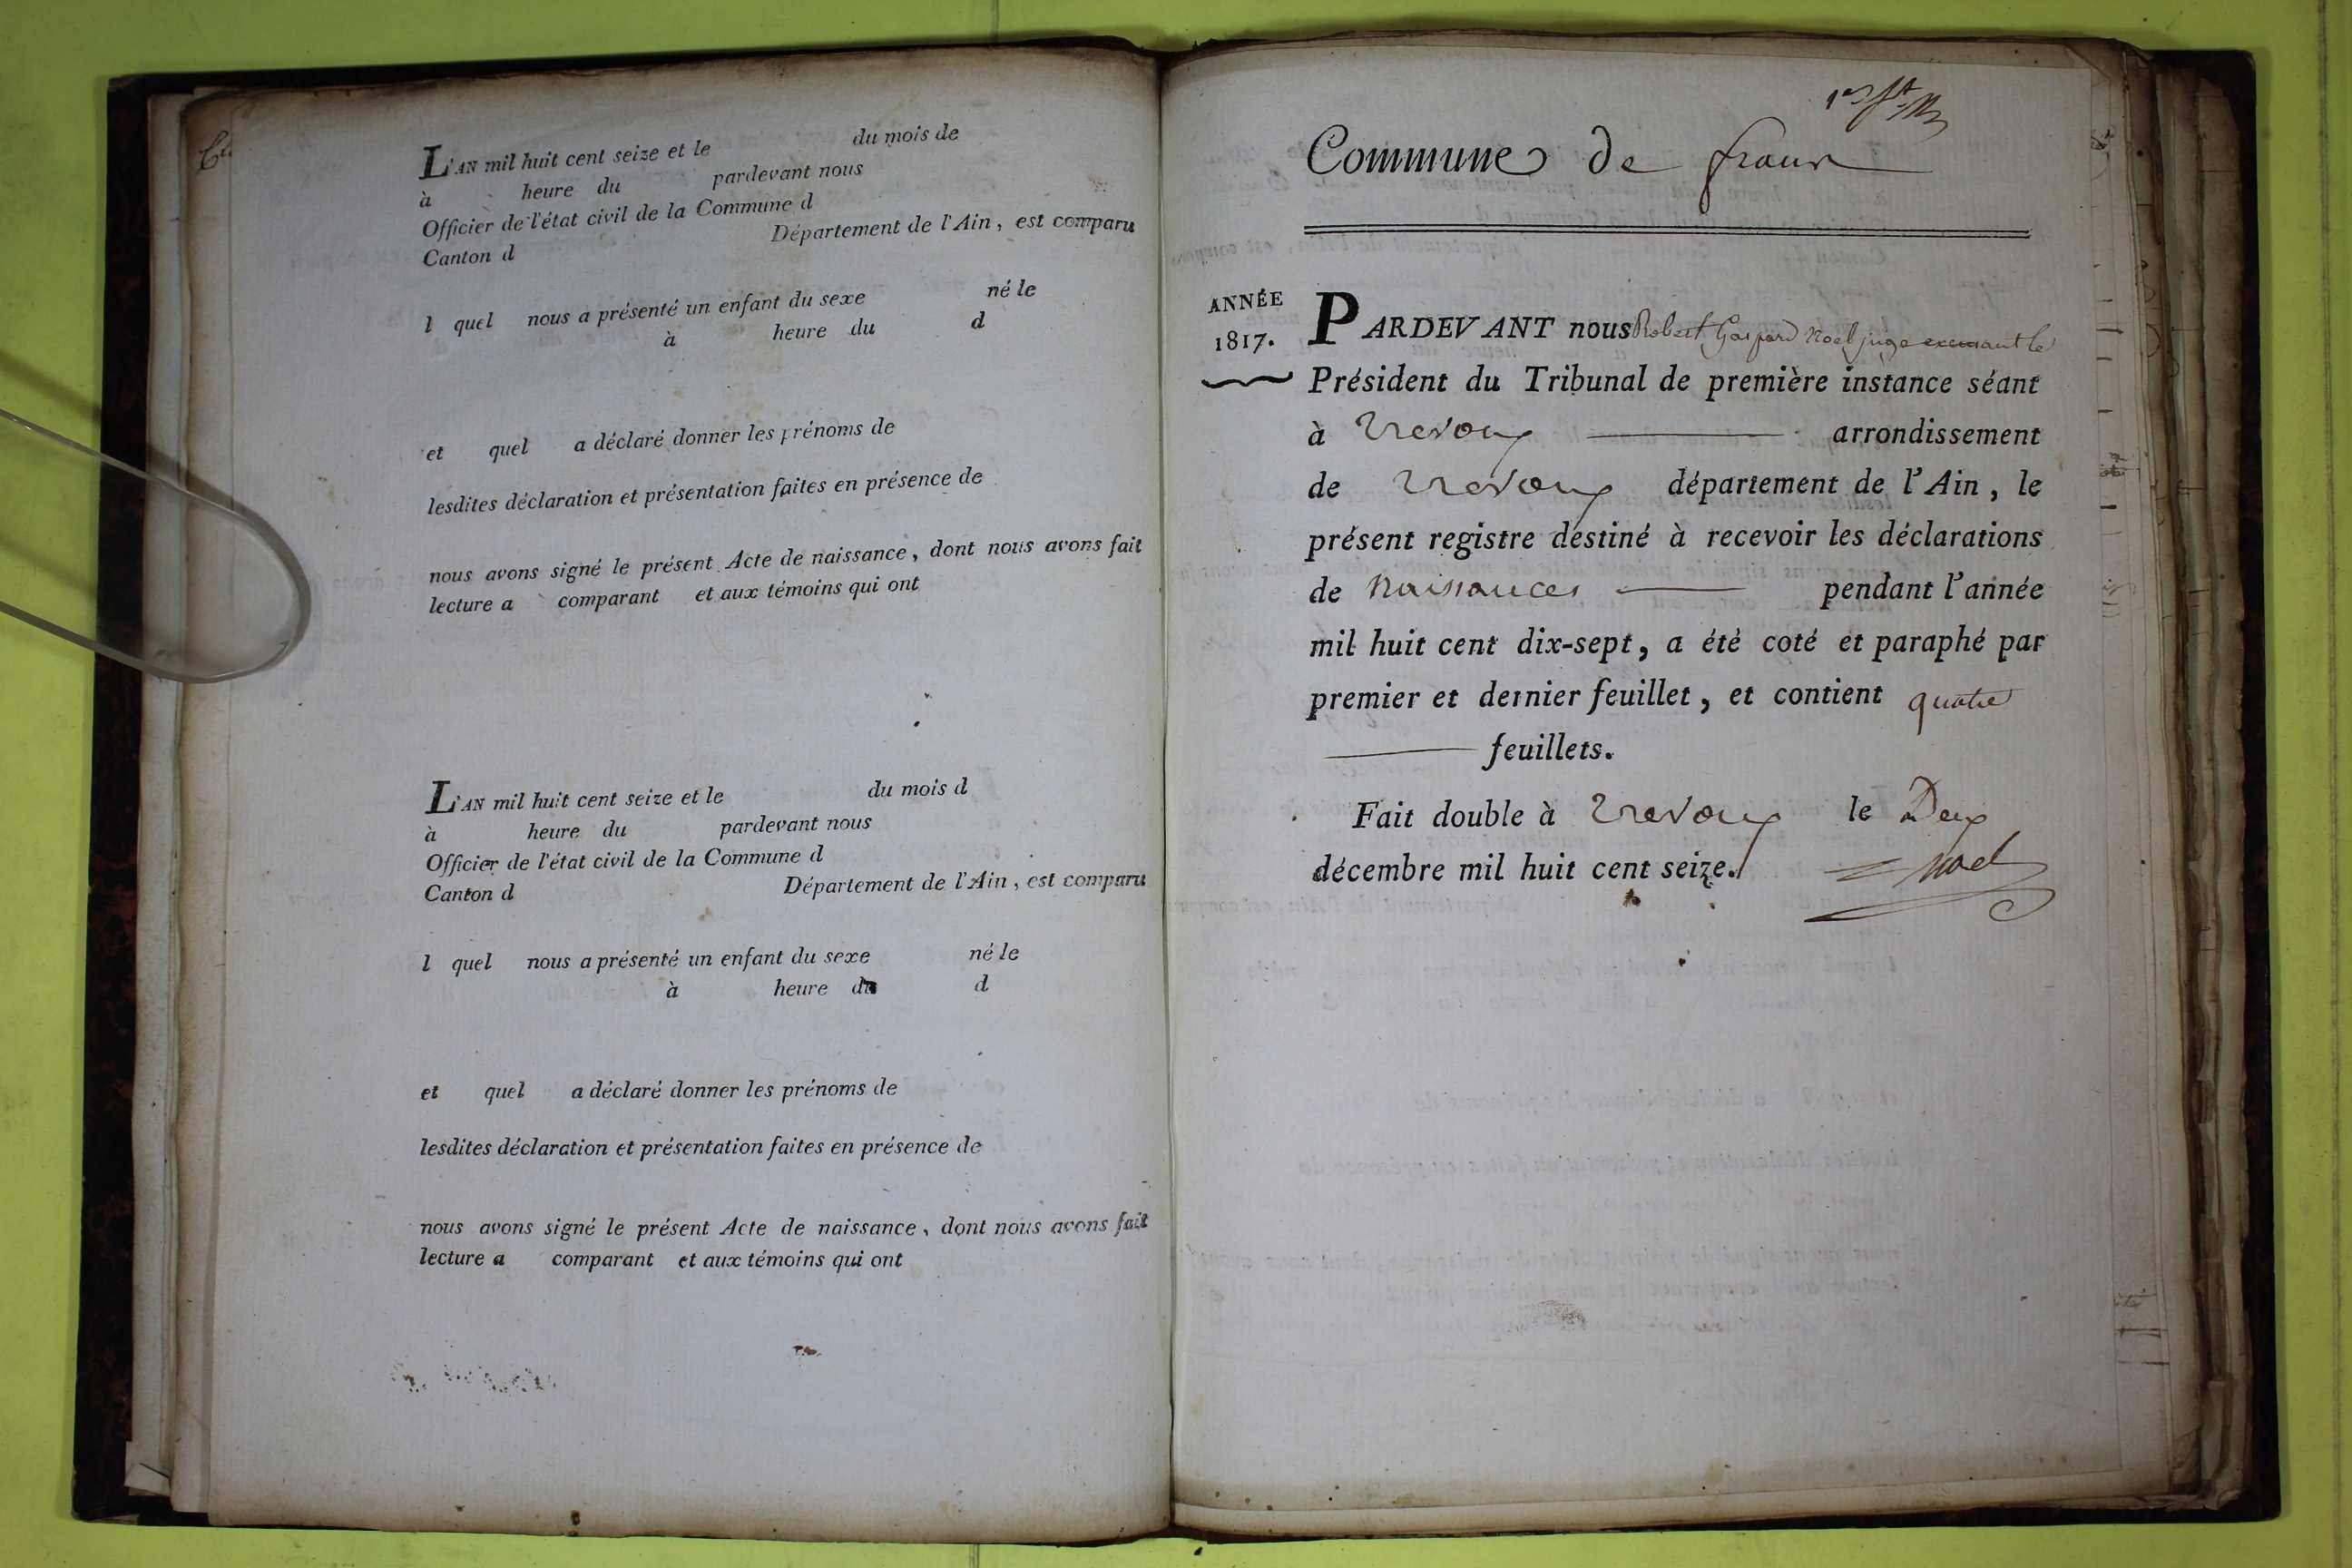 L'AN mil huit cent seize et le du mois de
à heure du pardevant nous
Officier de l'état civil de la Commune d
Canton d Département de l'Ain, est comparu
l quel nous a présenté un enfant du sexe né le
à heure du d
et quel a déclaré donner les prénoms de
lesdites déclaration et présentation faites en présence de
nous avons signé le présent Acte de naissance, dont nous avons fait
lecture a comparant et aux témoins qui ont
L'AN mil huit cent seize et le du mois d
à heure du pardevant nous
Officier de l'état civil de la Commune d
Canton d Département de l'Ain, est comparu
l quel nous a présenté un enfant du sexe né le
à heure du d
et quel a déclaré donner les prénoms de
lesdites déclaration et présentation faites en présence de
nous avons signé le présent Acte de naissance, dont nous avons fait
lecture a comparant et aux témoins qui ont
Commune de frans
ANNÉE
1817.
PARDEVANT nous Robert Gaspard Noel juge exerçant le
Président du Tribunal de première instance séant
à Trevoux arrondissement
de Trevoux département de l'Ain, le
présent registre destiné à recevoir les déclarations
de Naissances pendant l'année
mil huit cent dix-sept, a été coté et paraphé par
premier et dernier feuillet, et contient quatre
feuillets.
Fait double à Trevoux le Deux
décembre mil huit cent seize.
Noel